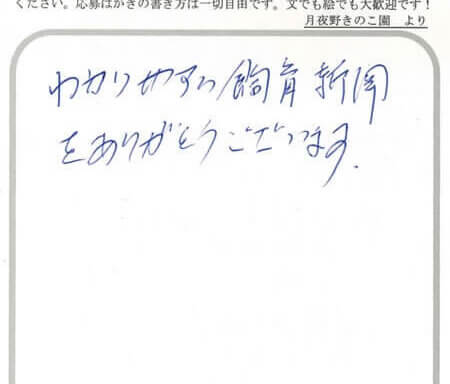 ください。応募はがきの書き方は一切自由です。文でも絵でも大歓迎です！
月夜野きのこ園　より
わかりやすい飼育新聞
をありがとうございます.